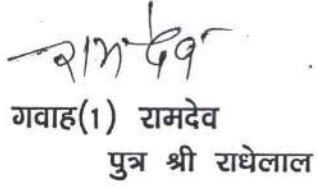 रामदेव
गवाह(1) रामदेव
पुत्र श्री राधेलाल